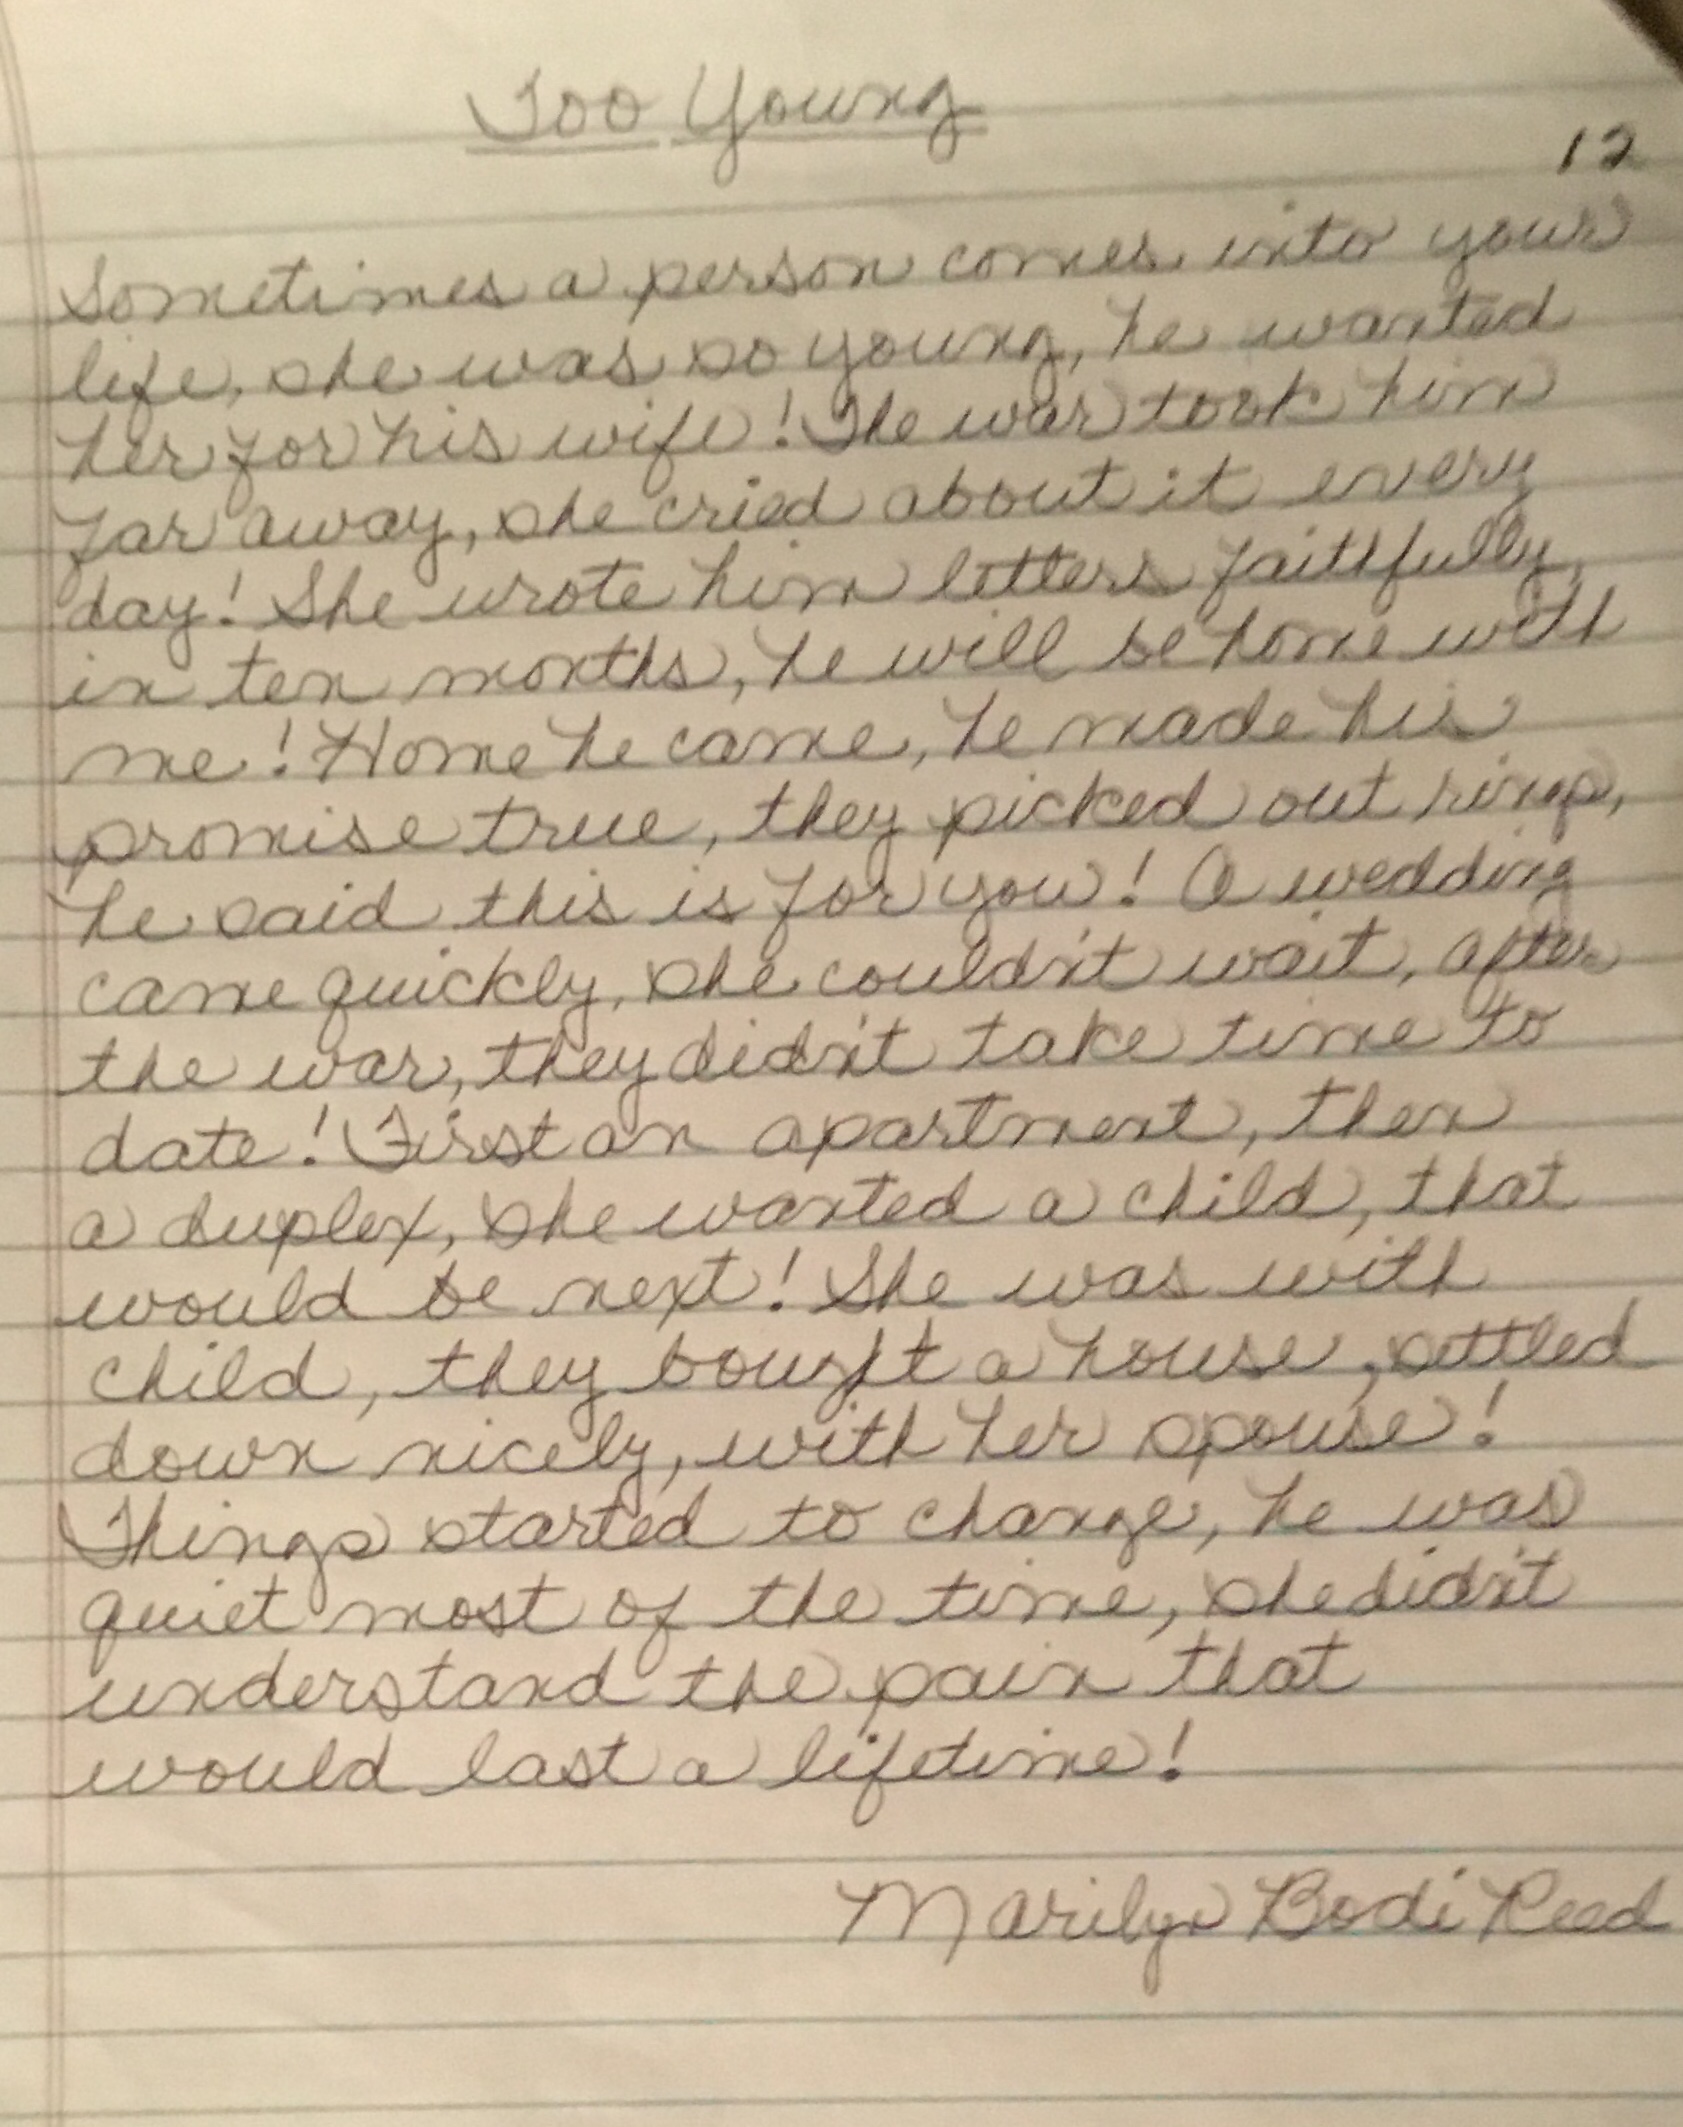 Too Young
12
Sometimes a person comes into your
life, she was so young, he wanted
her for his wife! The war took him
far away, she cried about it every
day! She wrote him letters faithfully,
in ten months, he will be home with
me! Home he came, he made his
promise true, they picked out rings,
he said this is for you! A wedding
came quickly, she couldn't wait, after
the war, they didn't take time to
date! First an apartment, then
a duplex, she wanted a child, that
would be next! She was with
child, they bought a house, settled
down nicely, with her spouse!
Things started to change, he was
quiet most of the time, she didn't
understand the pain that
would last a lifetime!
Marilyn Bodi Reed